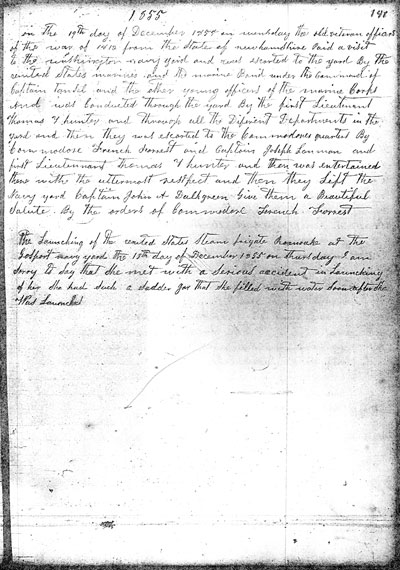 1855
141
on the 19th day of December 1855 on wensday the old veteran officers
of the war of 1812 from the State of newhamshire Paid a visit
to the washington navy yard and was escorted to the yard By the
united States marines and the marine Band under the command of
Captain Tansil and the other young officers of the marine Corps
And was Conducted through the yard By the first Lieutenant
Thomas T hunter and through all the Diferent Departments in the
yard and then they was escorted to the Commodores quarters By
Commodore French Forrest and Captain Joseph Lanman and
first Lieutennant Thomas T hunter and then was entertained
there with the uttermost respect and then they Left the
Navy yard Captain John A Dalhgreen Give them a Beautiful
Salute. By the orders of Commodore French Forrest
The Launching of the united States Steam frigate Roanoake at the
Gosport navy yard the 13th day of December 1855 on thursday I am
Sorry to Say that She met with a Serious accident in Launching
of her She had Such a Sudder Jar that She filled with water Soon after She
Was Launched